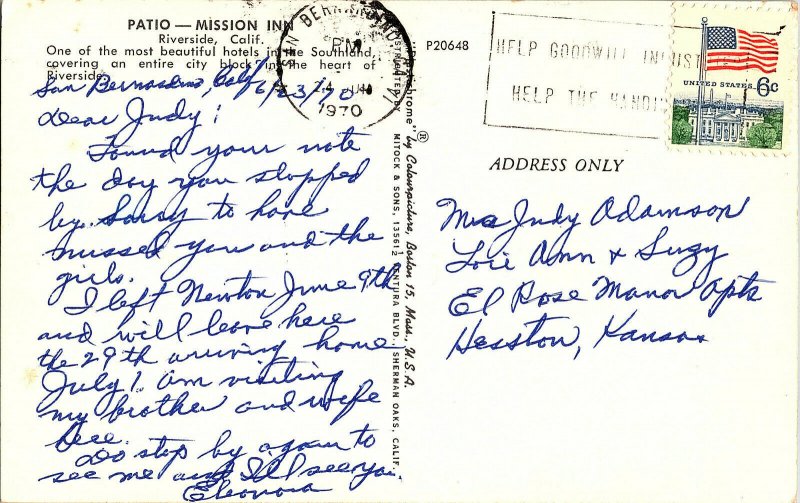 PATIO — MISSION INN
Riverside, Calif.
One of the most beautiful hotels in the Southland,
covering an entire city block in the heart of
Riverside.
San Bernardino, Calif 6/23/70
Dear Judy;
Found your note
the day you stopped
by. Sorry to have
missed you and the
girls.
I left Newton June 9th
and will leave here
the 29th arriving home
July 1. Am visiting
my brother and wife
here.
Do stop by again to
see me and I'll see you.
Eleonora
SAN BERNARDINO
PM
24 JUN
1970
"Plastichrome"® by Colourpicture, Boston 15, Mass., U.S.A.
DISTRIBUTED BY MITOCK & SONS, 13561½ VENTURA BLVD., SHERMAN OAKS, CALIF.
P20648
HELP GOODWILL INDUSTRIES
HELP THE HANDI
UNITED STATES 6c
ADDRESS ONLY
Mrs Judy Adamson
Lori Ann & Suzy
El Rose Manor Apts
Hesston, Kansas